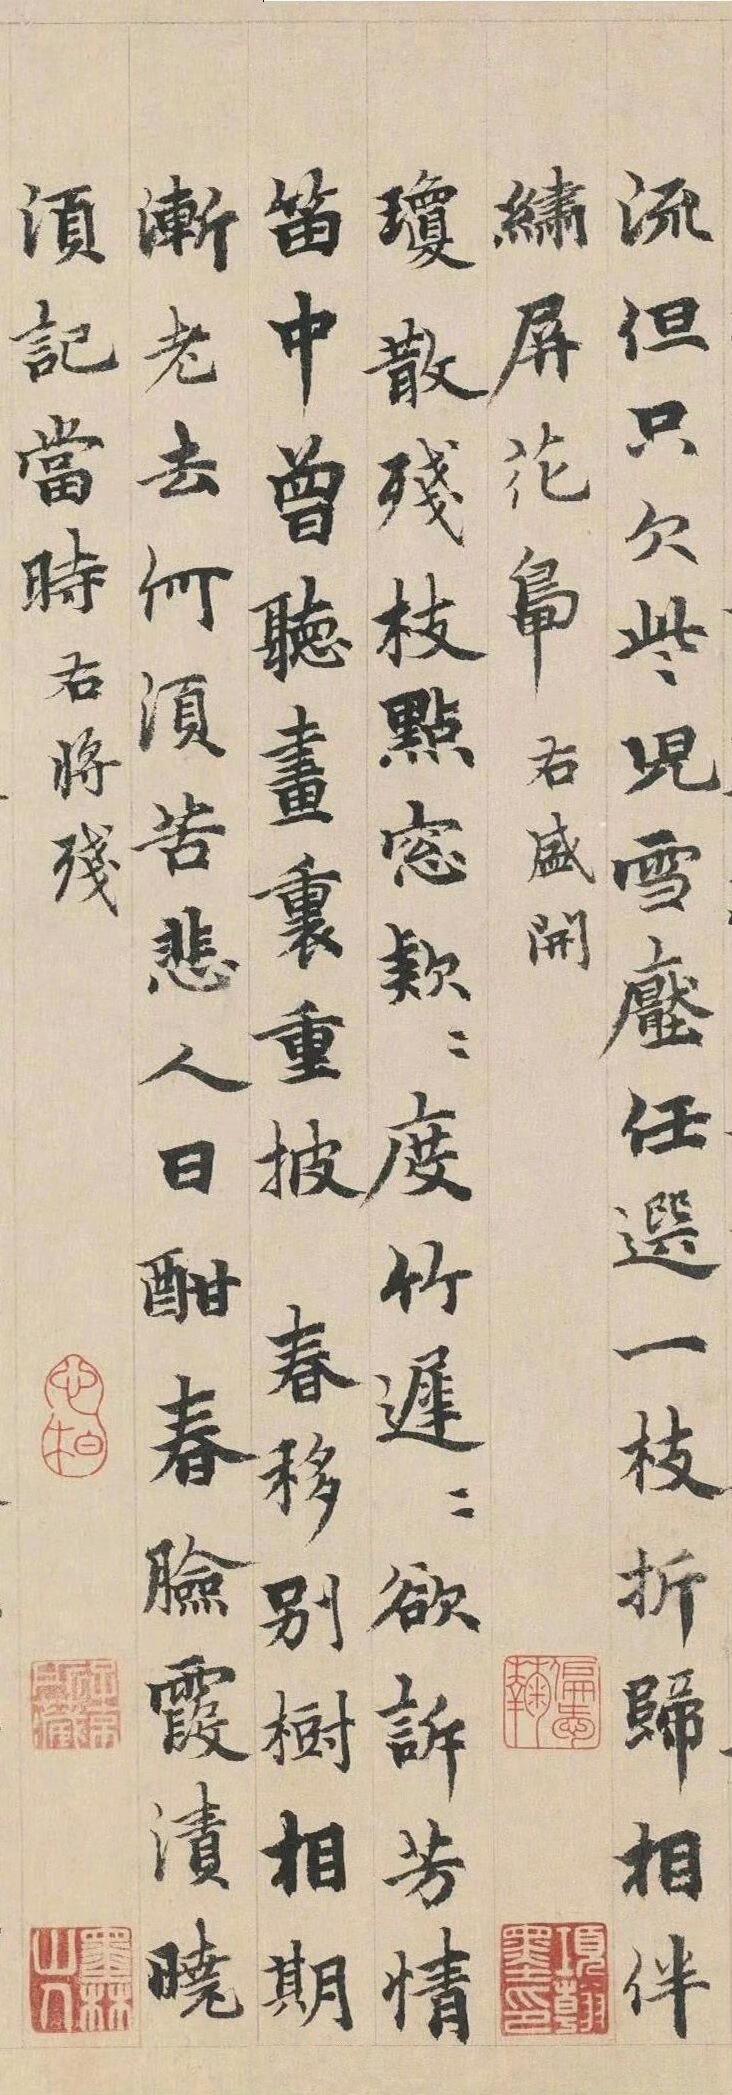 流但只欠些〻兒雪壓任選一枝折歸相伴
繡屏花鴨 右盛開
瓊散殘枝點窓款〻度竹遲〻欲訴芳情
笛中曾聽畫裏重披 春移別樹相期
漸老去何須苦悲人日酣春臉霞漬曉
須記當時 右將殘
墨林山人